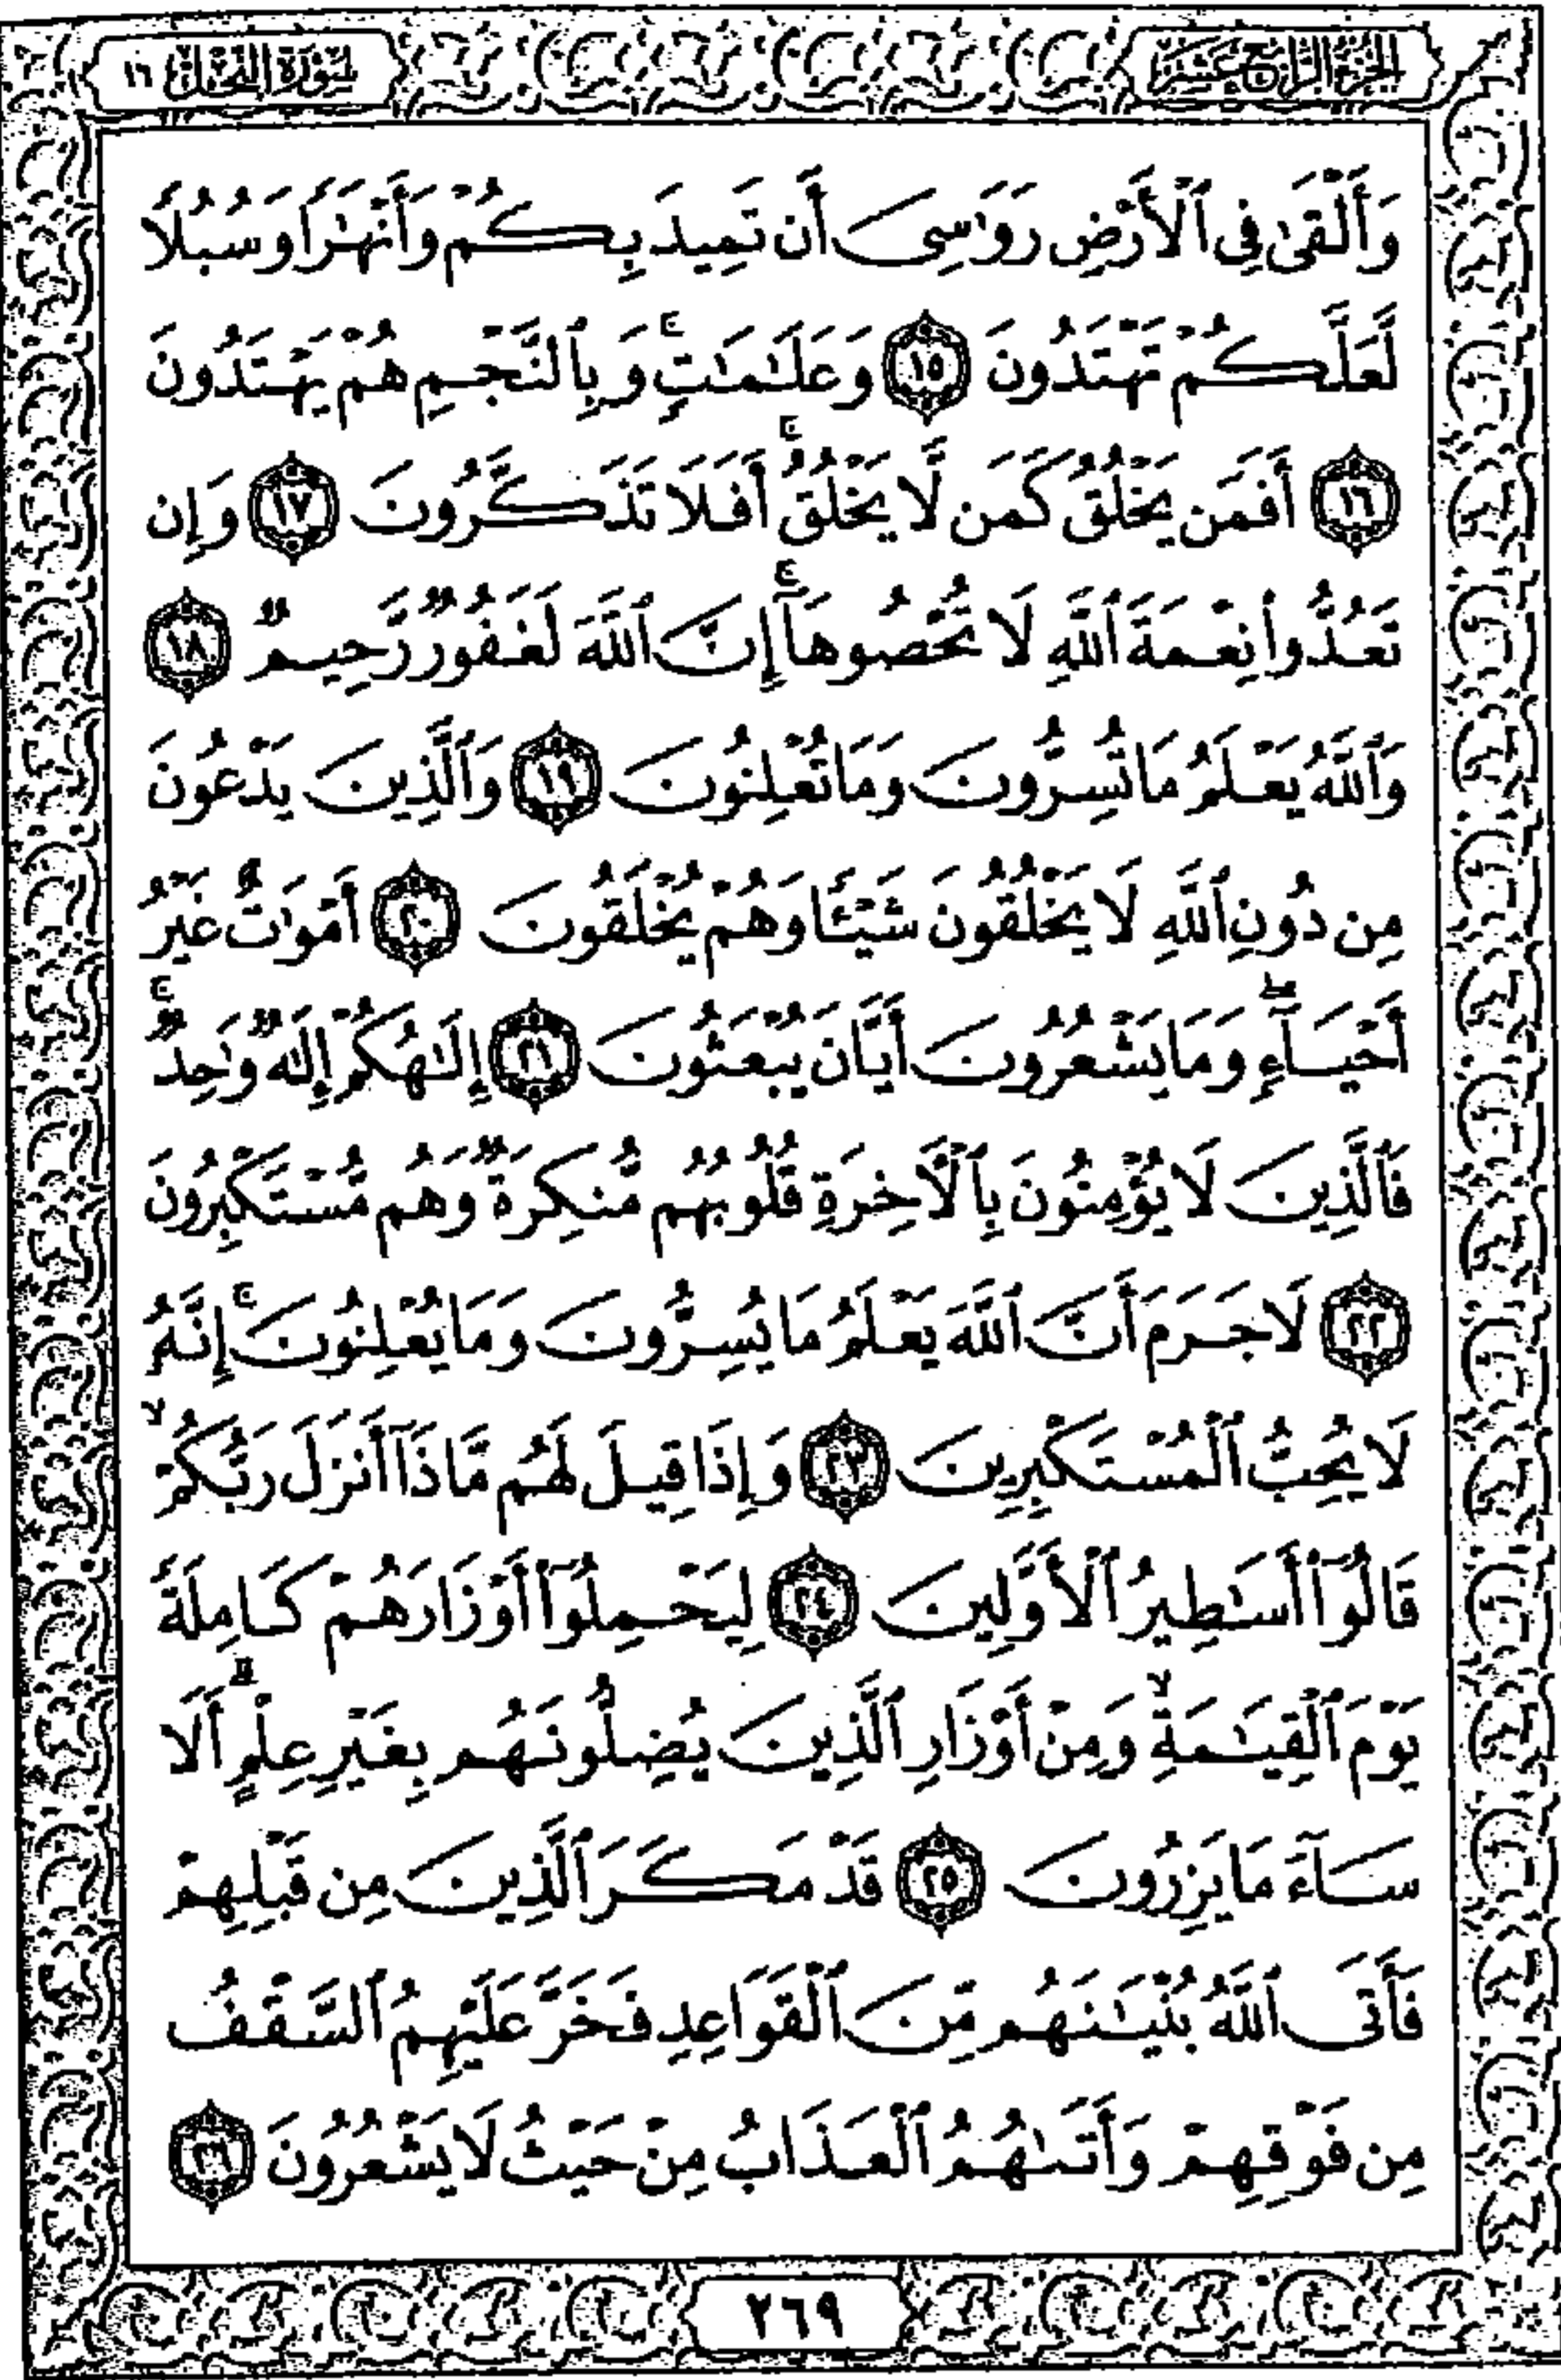 الجزء الرابع عشر
سورة النحل ١٦
وَأَلْقَىٰ فِي ٱلْأَرْضِ رَوَٰسِىَ أَن تَمِيدَ بِكُمْ وَأَنْهَٰرًا وَسُبُلًا
لَّعَلَّكُمْ تَهْتَدُونَ ١٥ وَعَلَٰمَٰتٍۚ وَبِٱلنَّجْمِ هُمْ يَهْتَدُونَ
١٦ أَفَمَن يَخْلُقُ كَمَن لَّا يَخْلُقُۗ أَفَلَا تَذَكَّرُونَ ١٧ وَإِن
تَعُدُّوا۟ نِعْمَةَ ٱللَّهِ لَا تُحْصُوهَآۗ إِنَّ ٱللَّهَ لَغَفُورٌ رَّحِيمٌ ١٨
وَٱللَّهُ يَعْلَمُ مَا تُسِرُّونَ وَمَا تُعْلِنُونَ ١٩ وَٱلَّذِينَ يَدْعُونَ
مِن دُونِ ٱللَّهِ لَا يَخْلُقُونَ شَيْـًٔا وَهُمْ يُخْلَقُونَ ٢٠ أَمْوَٰتٌ غَيْرُ
أَحْيَآءٍۖ وَمَا يَشْعُرُونَ أَيَّانَ يُبْعَثُونَ ٢١ إِلَٰهُكُمْ إِلَٰهٌ وَٰحِدٌۚ
فَٱلَّذِينَ لَا يُؤْمِنُونَ بِٱلْءَاخِرَةِ قُلُوبُهُم مُّنكِرَةٌ وَهُم مُّسْتَكْبِرُونَ
٢٢ لَا جَرَمَ أَنَّ ٱللَّهَ يَعْلَمُ مَا يُسِرُّونَ وَمَا يُعْلِنُونَۚ إِنَّهُۥ
لَا يُحِبُّ ٱلْمُسْتَكْبِرِينَ ٢٣ وَإِذَا قِيلَ لَهُم مَّاذَآ أَنزَلَ رَبُّكُمْۙ
قَالُوٓا۟ أَسَٰطِيرُ ٱلْأَوَّلِينَ ٢٤ لِيَحْمِلُوٓا۟ أَوْزَارَهُمْ كَامِلَةً
يَوْمَ ٱلْقِيَٰمَةِۙ وَمِنْ أَوْزَارِ ٱلَّذِينَ يُضِلُّونَهُم بِغَيْرِ عِلْمٍۗ أَلَا
سَآءَ مَا يَزِرُونَ ٢٥ قَدْ مَكَرَ ٱلَّذِينَ مِن قَبْلِهِمْ
فَأَتَى ٱللَّهُ بُنْيَٰنَهُم مِّنَ ٱلْقَوَاعِدِ فَخَرَّ عَلَيْهِمُ ٱلسَّقْفُ
مِن فَوْقِهِمْ وَأَتَىٰهُمُ ٱلْعَذَابُ مِنْ حَيْثُ لَا يَشْعُرُونَ ٢٦
٢٦٩